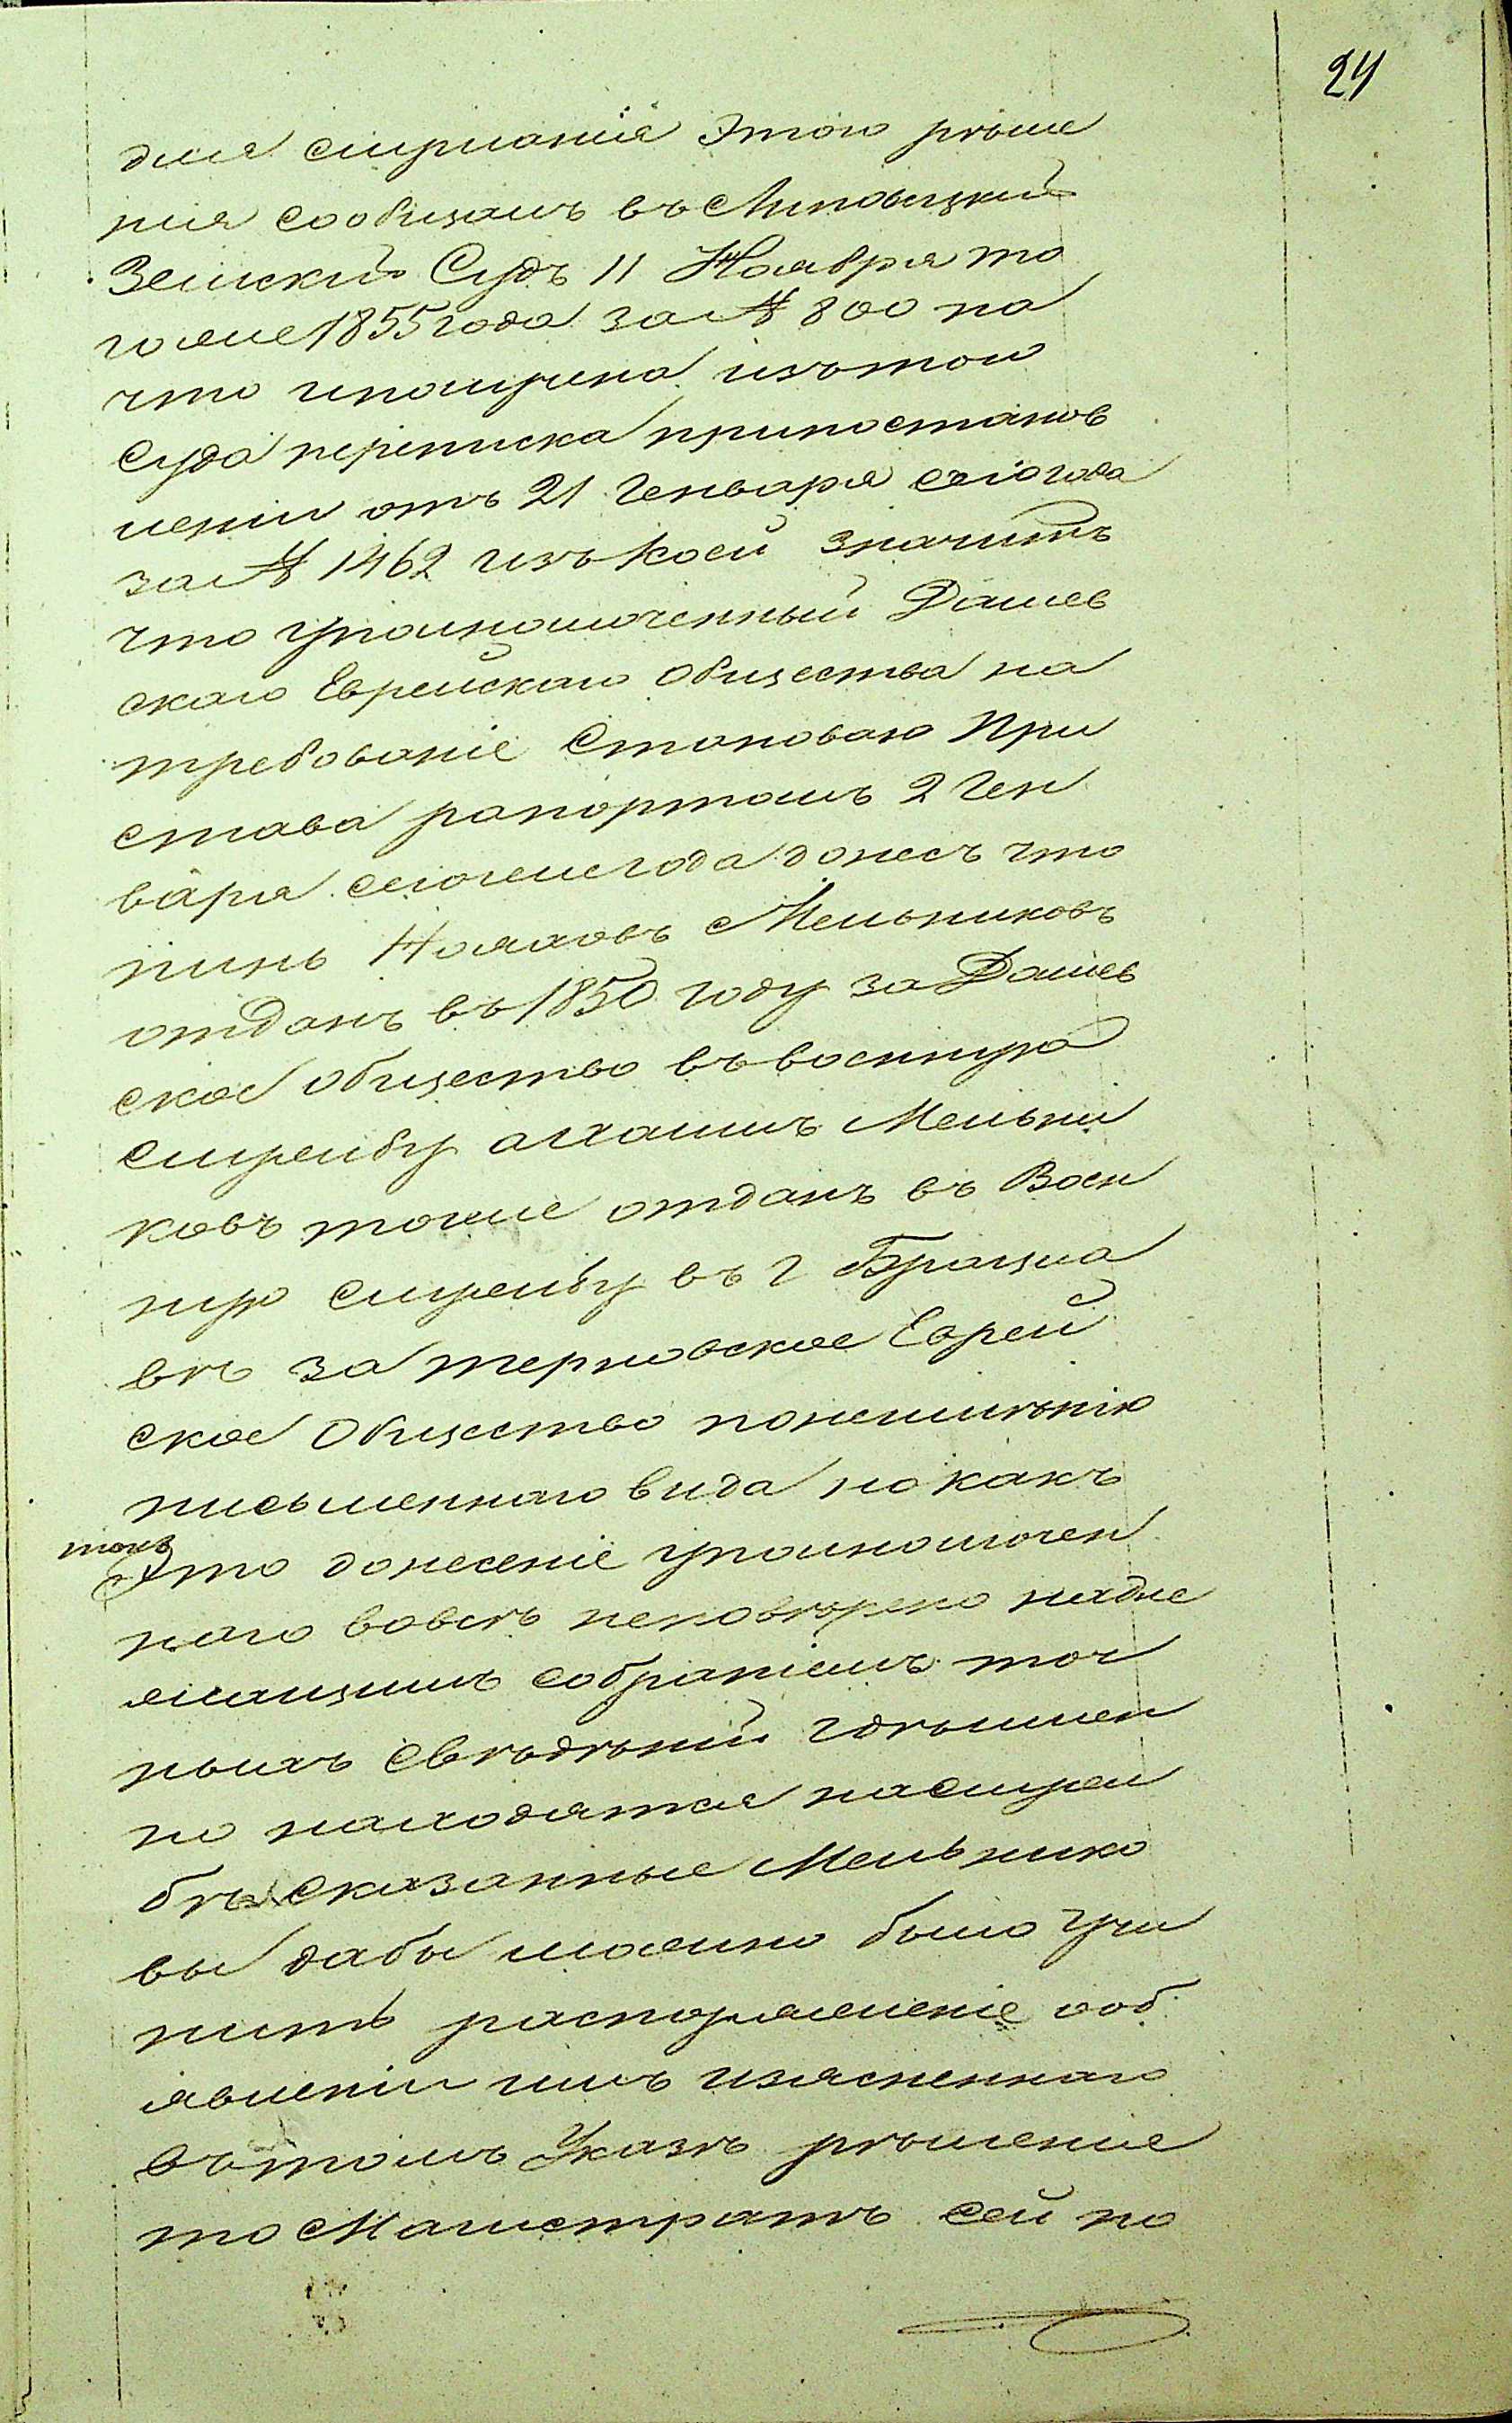 24
для слушанія этого рѣше
нія сообщалъ въ Липовецкій
Земскій Судъ 11 Ноября то
гоже 1855 года за № 800 на
что получена изъ того
Суда переписка при постанов
леніи отъ 21 Генваря сего года
за № 1462 изъ коей значитъ
что уполномоченный Дашев
скаго Еврейскаго Общества на
требованіе Становаго При
става рапортомъ 2 Ген
варя сегоже года донесъ что
нинь Мельниковъ
отданъ въ 1850 году за Дашев
ское общество въ военную
службу а Хаимъ Мельни
ковъ тоже отданъ въ Воен
ную службу въ г Брацла
вѣ за терновское Еврей
ское Общество понеимѣнію
письменнаго вида но какъ
такъ
Это донесеніе уполномочен
наго вовсѣ неповѣрено надле
жащимъ собраніемъ точ
ныхъ свѣдѣній гдѣ имен
но находятся наслуж
бѣ сказанные Мельнико
вы дабы можно было учи
нить распоряженіе ооб
явленіи имъ изясненнаго
въ томъ Указѣ рѣшеніе
то Магистратъ сей по